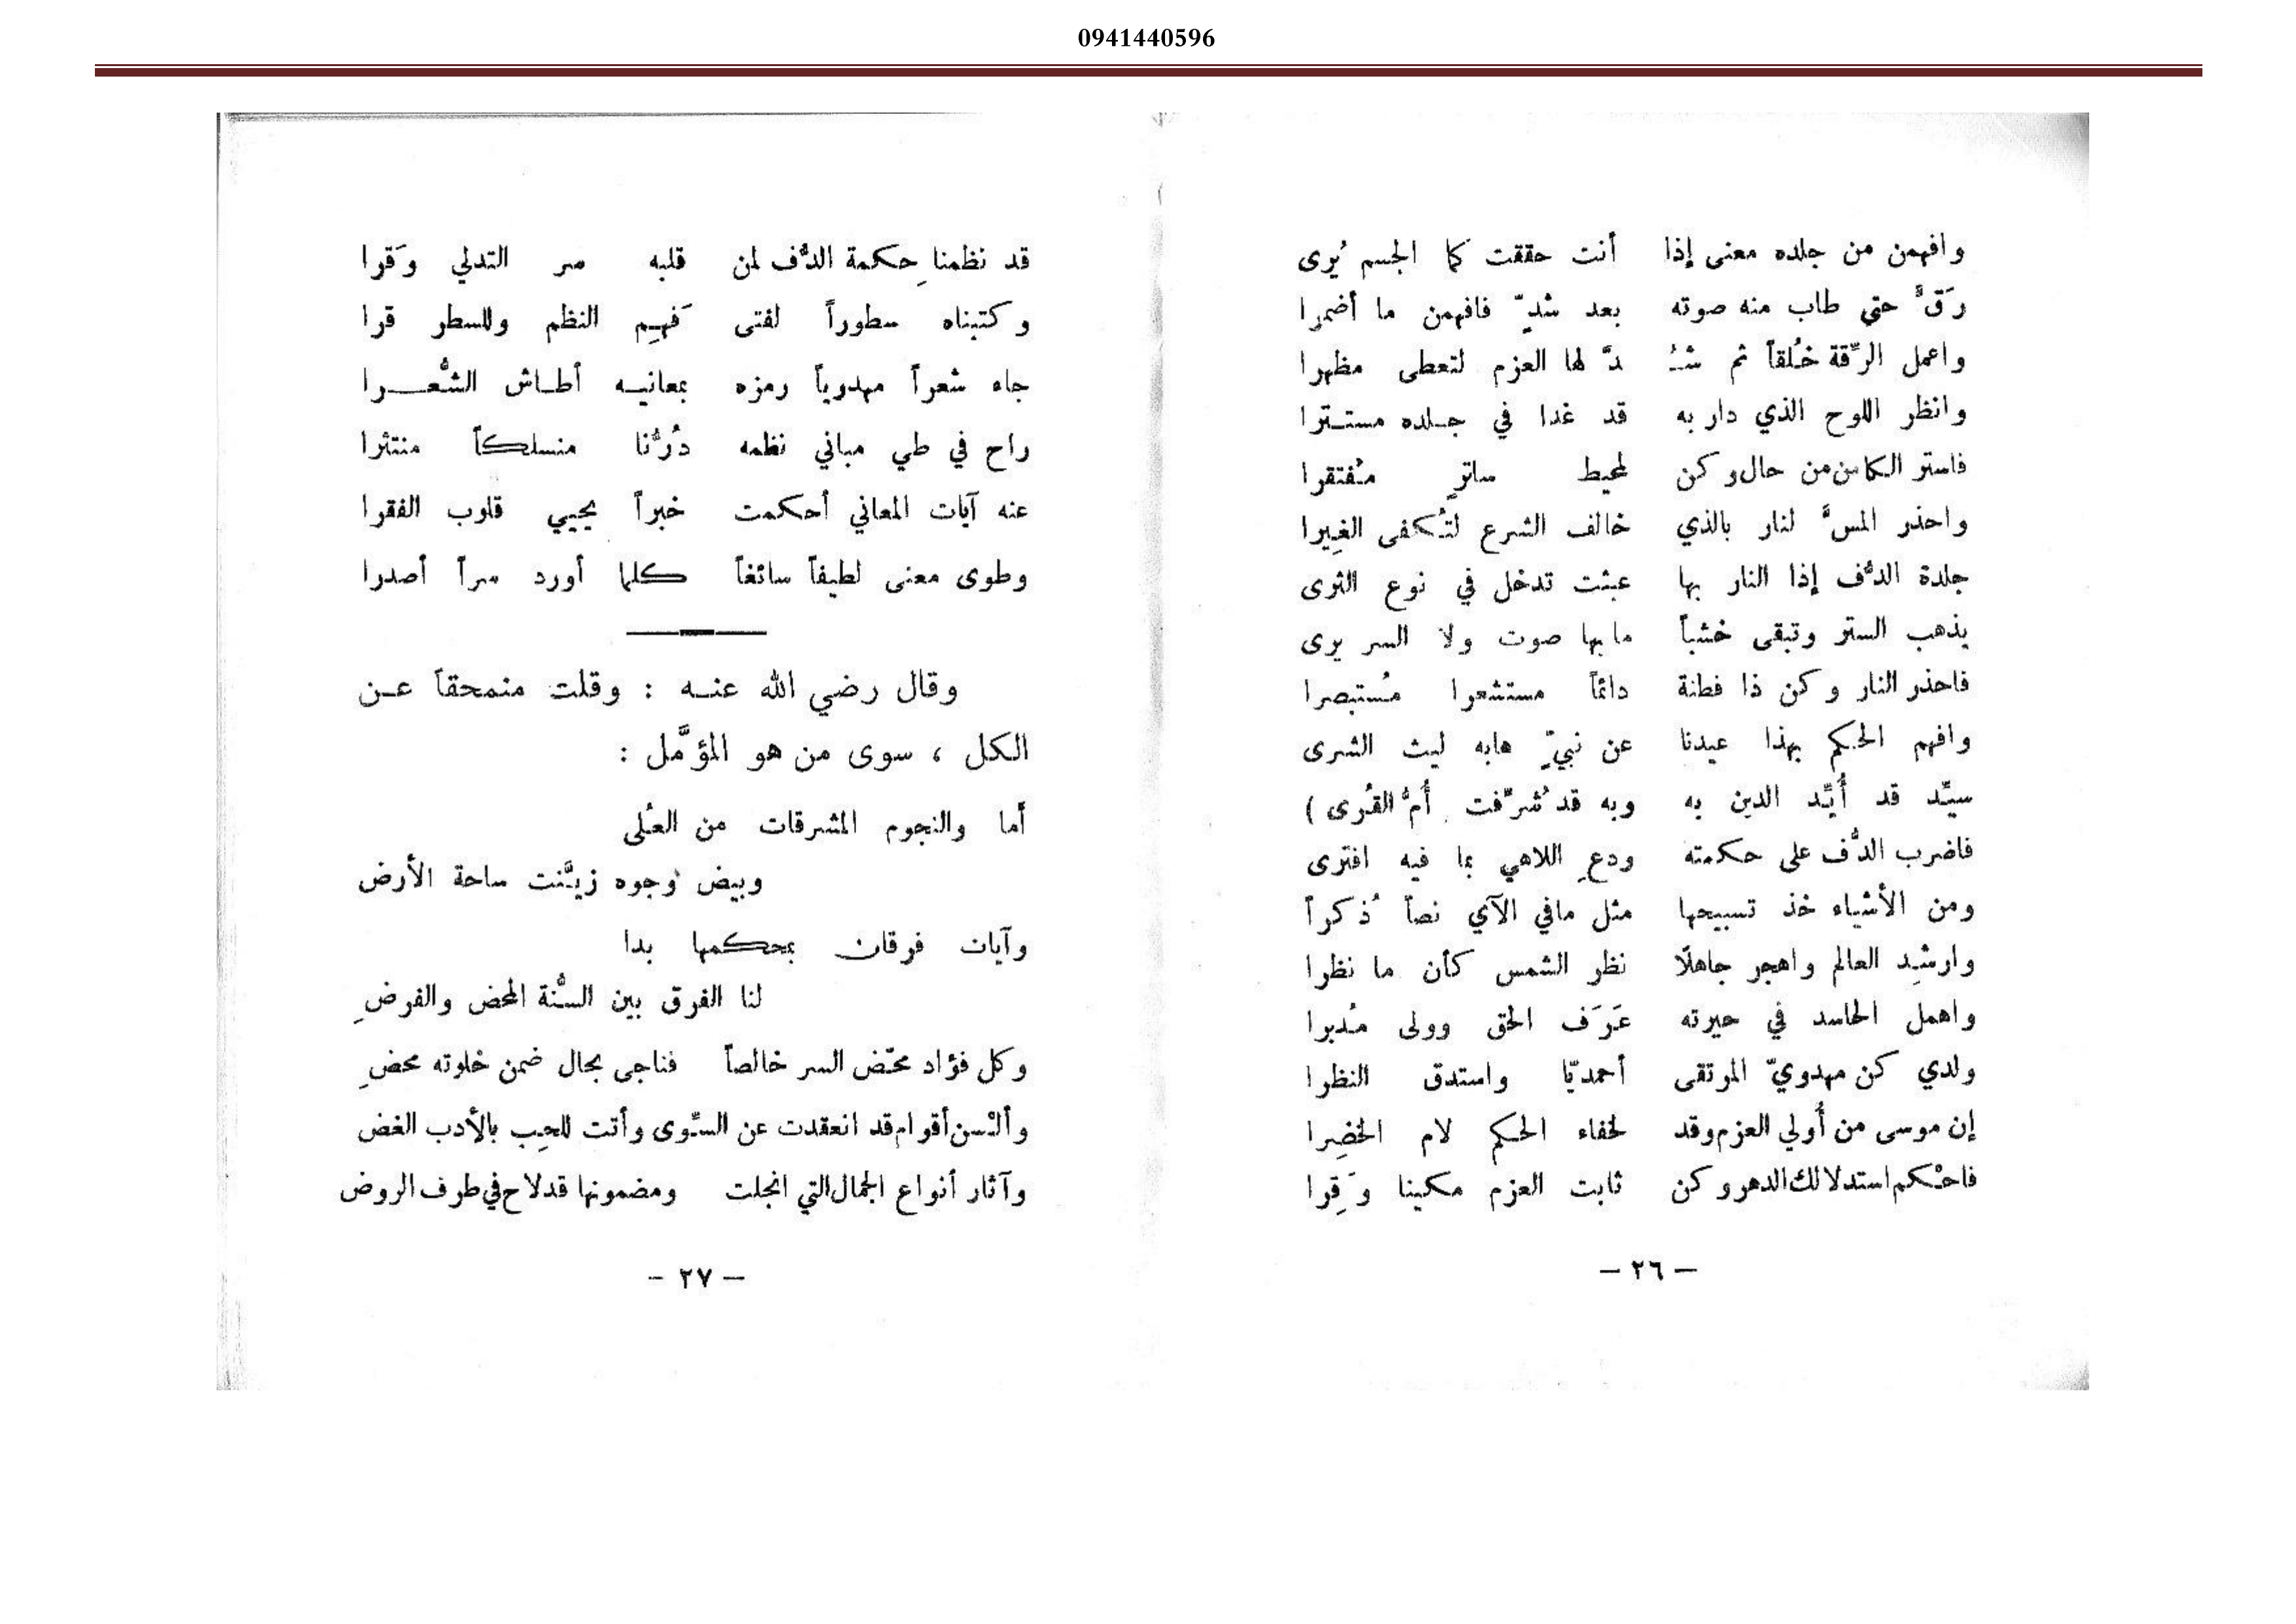 0941440596
وافهمن من جلده معنى إذا أنت حققت كما الجسم يُرى
رَقَّ حتى طاب منه صوته بعد شدٍّ فافهمن ما أضمرا
واعمل الرِّقة خُلقاً ثم شُـ ـدَّ لها العزم لتعطى مظهرا
وانظر اللوح الذي دار به قد غدا في جلده مستترا
فاستر الكامن من حال وكن لمحيط ساترٍ مُفتقرا
واحذر المسَّ لنار بالذي خالف الشرع لتُكفى الغِيرا
جلدة الدُّف إذا النار بها عبثت تدخل في نوع الثرى
يذهب الستر وتبقى خشباً ما بها صوت ولا السر يرى
فاحذر النار وكن ذا فطنة دائماً مستشعرا مُستبصرا
وافهم الحكم بهذا عيدنا عن نبيٍّ هابه ليث الشرى
سيِّد قد أُيِّد الدين به وبه قد شُرِّفت أُمُّ القُرى )
فاضرب الدُّف على حكمته ودعِ اللاهي بما فيه افترى
ومن الأشياء خذ تسبيحها مثل مافي الآي نصاً ذُكراً
وارشِد العالم واهجر جاهلًا نظر الشمس كأن ما نظرا
واهمل الحاسد في حيرته عَرَف الحق وولى مُدبرا
ولدي كن مهدويّ المرتقى أحمديّا واستدق النظرا
إن موسى من أُولي العزم وقد لخفاء الحكم لام الخضِرا
فاحْكم استدلالك الدهر وكن ثابت العزم مكينا وَقِرا
– ٢٦ –
قد نظمنا حِكمة الدُّف لمن قلبه سر التدلي وَقرا
وكتبناه سطوراً لفتى فَهِم النظم وللسطر قرا
جاء شعراً مهدوياً رمزه بمعانيه أطاش الشُّعرا
راح في طي مباني نظمه دُرُّنا منسلكاً منتثرا
عنه آيات المعاني أحكمت خبراً يحيي قلوب الفقرا
وطوى معنى لطيفاً سائغاً كلما أورد سراً أصدرا
وقال رضي الله عنه : وقلت منمحقاً عن
الكل ، سوى من هو المؤمَّل :
أما والنجوم المشرقات من العُلى
وبيض وُجوه زيَّنت ساحة الأرض
وآيات فرقان بمحكمها بدا
لنا الفرق بين السُّنة المحض والفرضِ
وكل فؤاد محّض السر خالصاً فناجى بحال ضمن خلوته محضِ
وألْسن أقوام قد انعقدت عن السِّوى وأتت للحِب بالأدب الغض
وآثار أنواع الجمال التي انجلت ومضمونها قد لاح في طرف الروض
– ٢٧ –